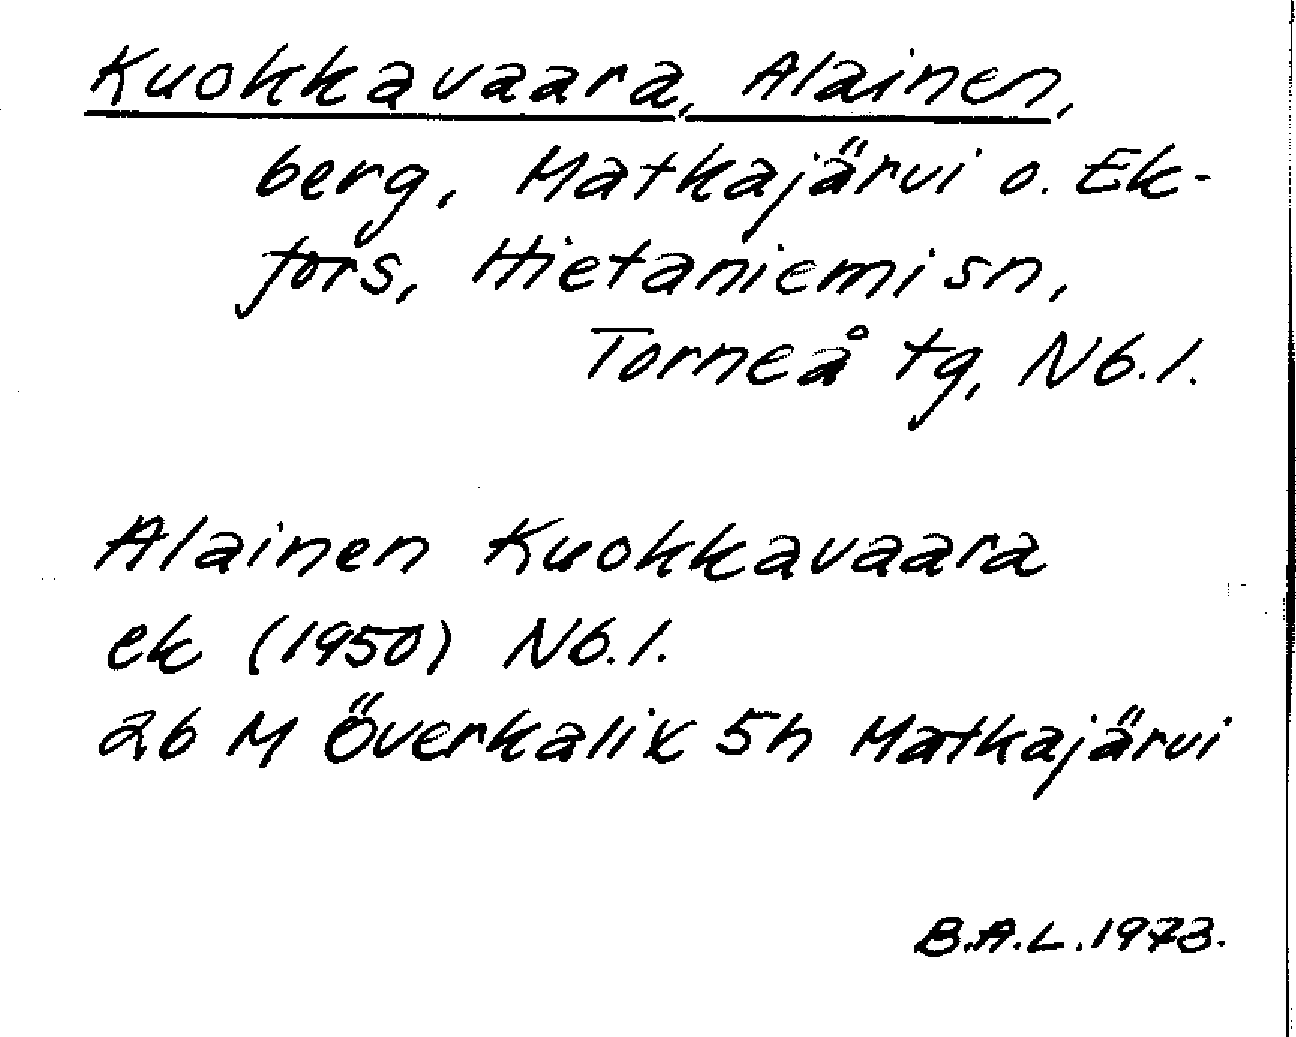 Kuokkavaara, Alainen,
berg, Matkajärvi o. Ek-
fors, Hietaniemi sn,
Torneå tg, Nb.l.
Alainen Kuokkavaara
ek (1950) Nb.l.
26 M Överkalix 5h Matkajärvi
B.A.L. 1973.